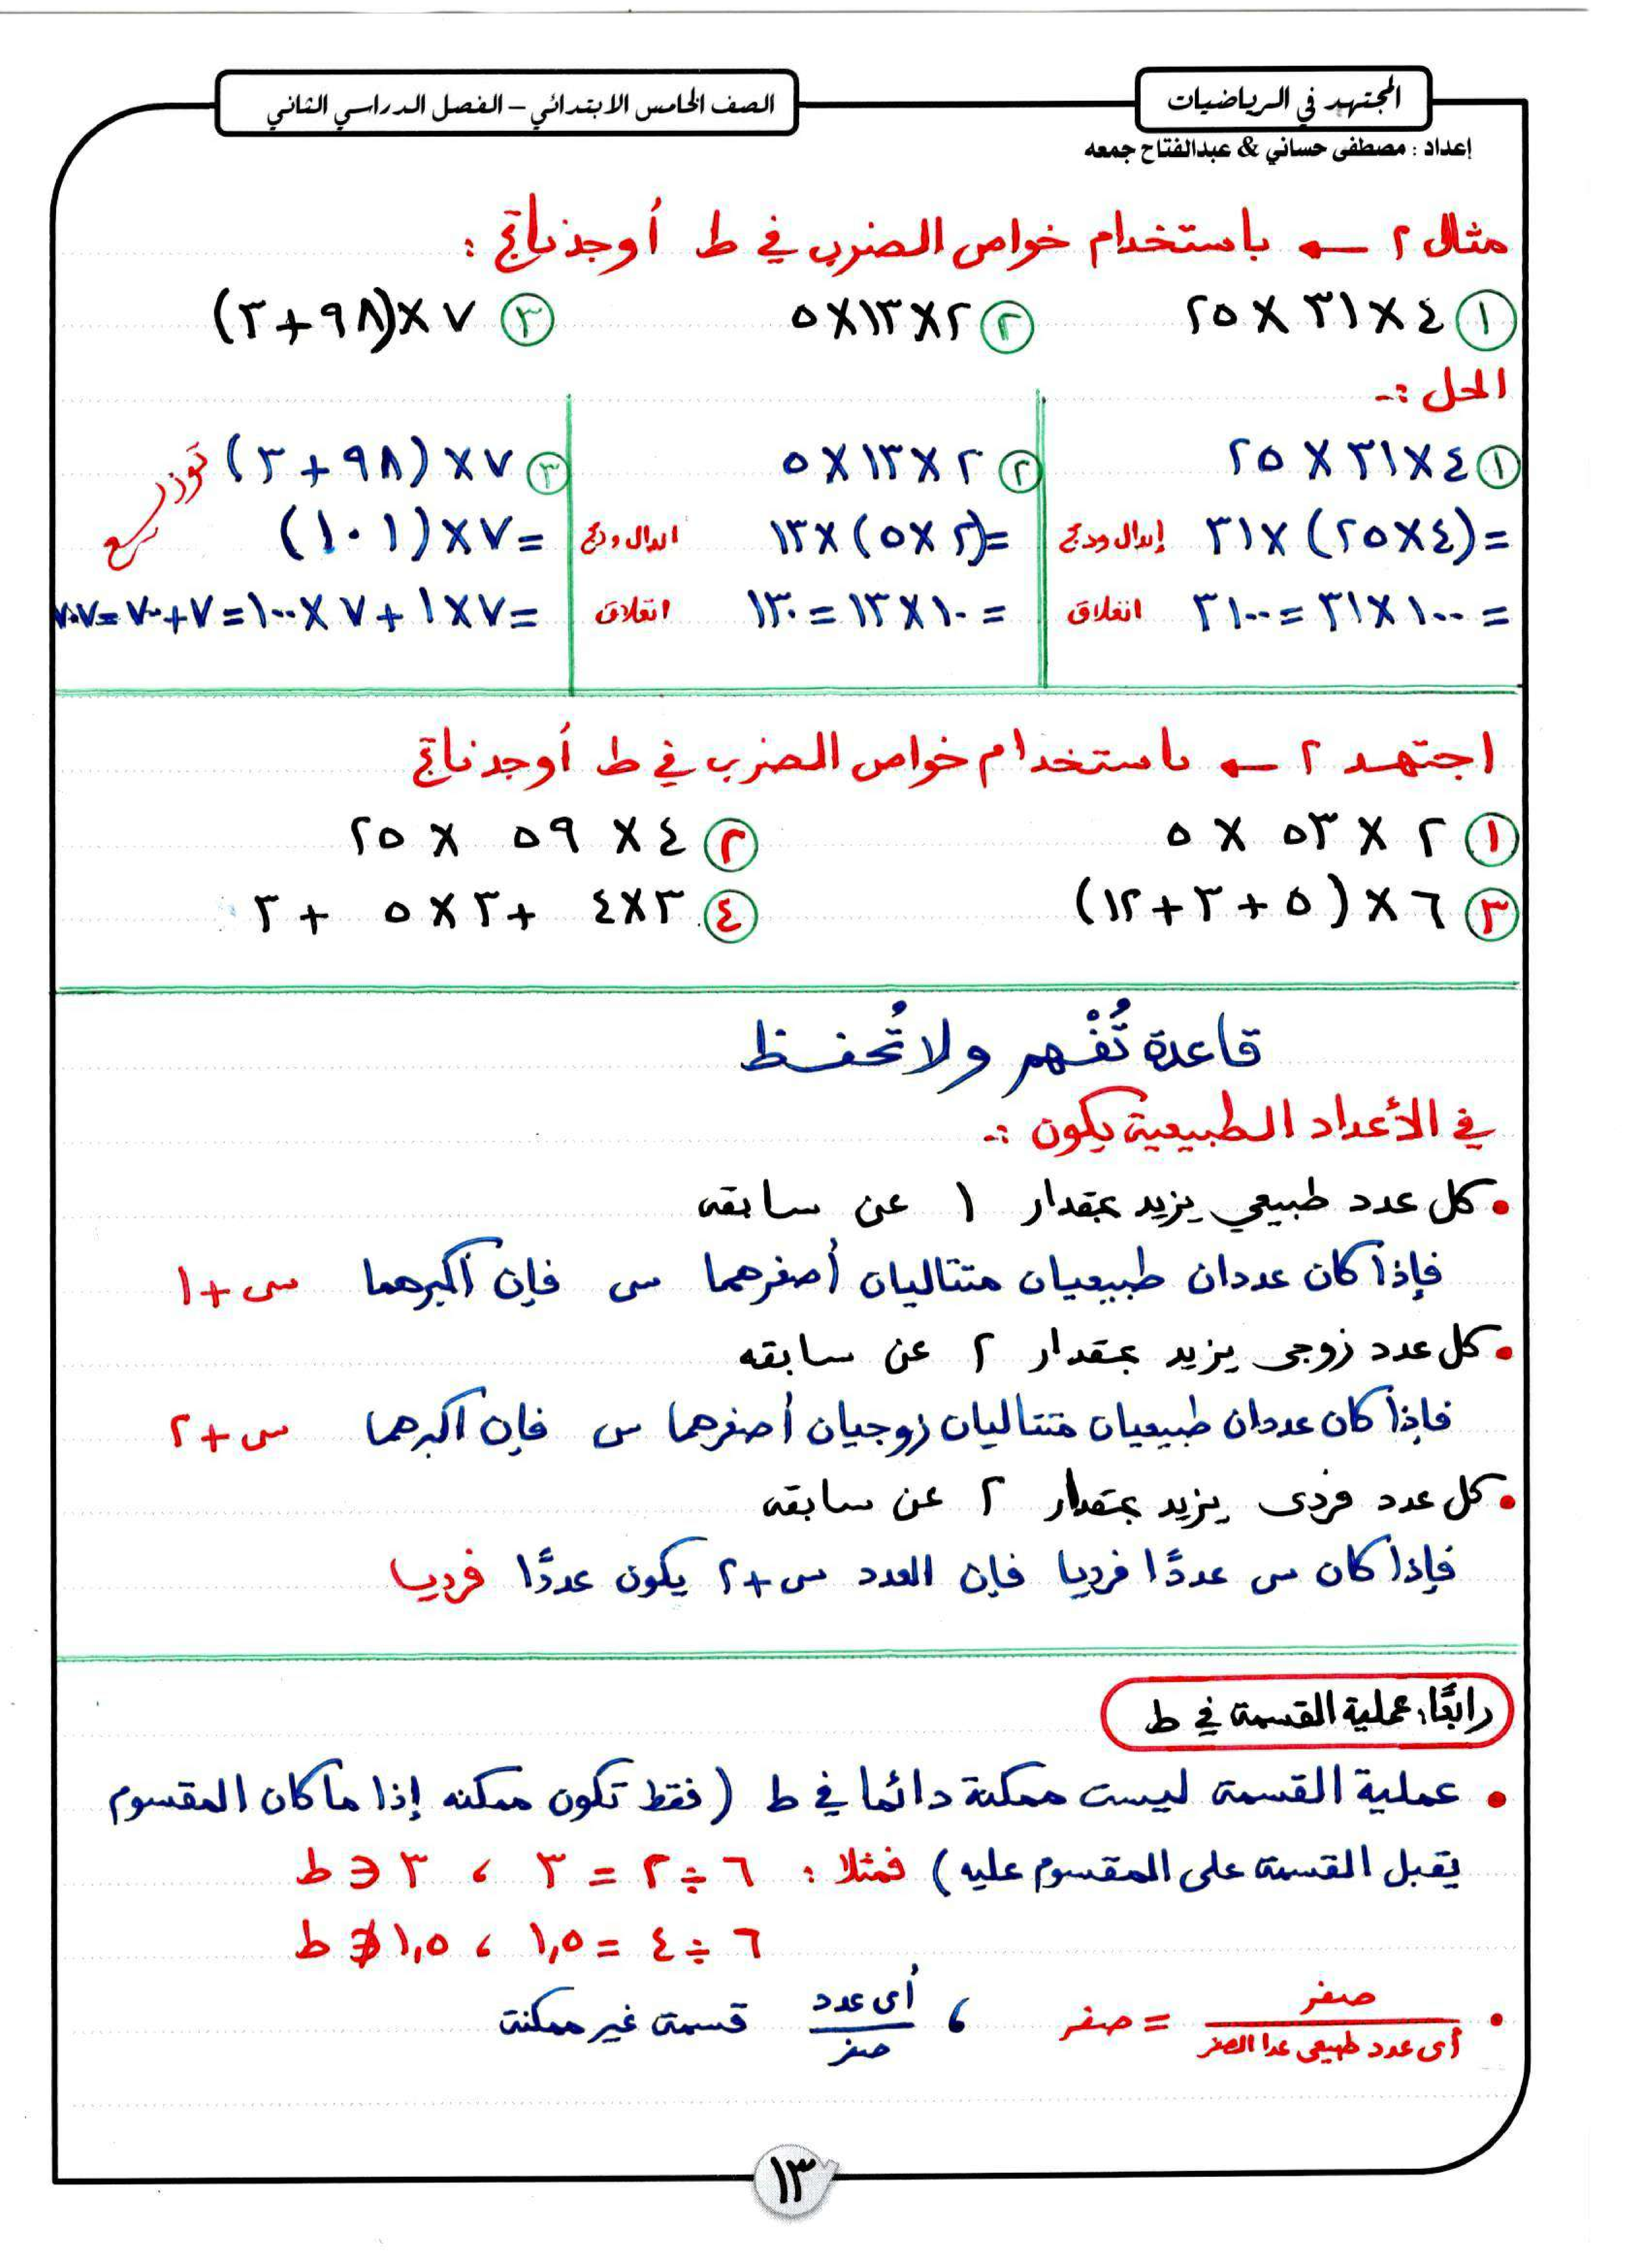 المجتهد في الرياضيات
الصف الخامس الابتدائي – الفصل الدراسي الثاني
إعداد : مصطفى حساني & عبدالفتاح جمعه
مثال ٢ ← باستخدام خواص الضرب في ط أوجد ناتج :
١ ٤ × ٣١ × ٢٥
٢ ٢ × ١٣ × ٥
٣ ٧ × (٩٨ + ٣)
الحل :-
١ ٤ × ٣١ × ٢٥
= (٤ × ٢٥) × ٣١ إبدال ودمج
= ١٠٠ × ٣١ = ٣١٠٠ انغلاق
٢ ٢ × ١٣ × ٥
= (٢ × ٥) × ١٣ ابدال ودمج
= ١٠ × ١٣ = ١٣٠ انغلاق
٣ ٧ × (٩٨ + ٣) توزيع
= ٧ × (١٠١)
= ٧ × ١ + ٧ × ١٠٠ = ٧ + ٧٠٠ = ٧٠٧
اجتهد ٢ ← باستخدام خواص الضرب في ط أوجد ناتج
١ ٢ × ٥٣ × ٥
٢ ٤ × ٥٩ × ٢٥
٣ ٦ × (٥ + ٣ + ١٢)
٤ ٣ × ٤ + ٣ × ٥ + ٣
قاعدة تُفْهم ولا تُحفظ
في الأعداد الطبيعية يكون :-
• كل عدد طبيعي يزيد بمقدار ١ عن سابقه
فإذا كان عددان طبيعيان متتاليان أصغرهما س فإن أكبرهما س + ١
• كل عدد زوجى يزيد بمقدار ٢ عن سابقه
فإذا كان عددان طبيعيان متتاليان زوجيان أصغرهما س فإن اكبرهما س + ٢
• كل عدد فردى يزيد بمقدار ٢ عن سابقه
فإذا كان س عددًا فرديا فإن العدد س + ٢ يكون عددًا فرديا
رابعًا: عملية القسمة في ط
• عملية القسمة ليست ممكنة دائما في ط (فقط تكون ممكنه إذا ما كان المقسوم
يقبل القسمة على المقسوم عليه) فمثلا : ٦ ÷ ٢ = ٣ ، ٣ ∈ ط
٦ ÷ ٤ = ١,٥ ، ١,٥ ∉ ط
• صفر / أى عدد طبيعى عدا الصفر = صفر ، أى عدد / صفر قسمة غير ممكنة
١٣